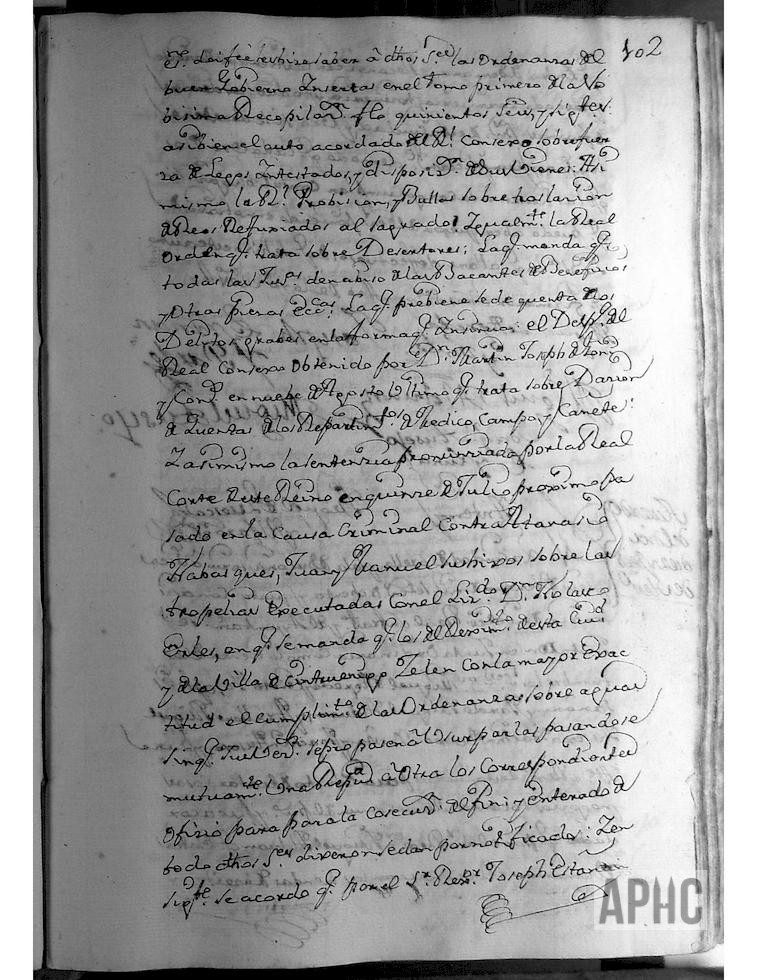 102
doi fee les hize saber â dhos S.res las Ordenanzas del
buen Gobierno Insertas en el tomo primero de la No
bisima Recopilaz.n folio quinientos Seis, y sig.tes
asibien el auto acordado del R.l Consexo sobre fuer
za de Legos Intestados, y disposiz.n de sus bienes: Asi
mismo la R.l Probision, y Bullas sobre traslazion
de Reos Refuxiados al sagrado: Igualm.te la Real
Orden q.e trata sobre Desertores; La q.e manda q.e
todas las Jus.s den abiso de las Bacantes de Beneficios
y Otras piezas Ecc.cas La q.e prebiene se de quenta de los
Delitos grabes en la forma q.e Insinua: el Desp.o del
Real Consexo Obtenido por D.n Martin Joseph de
y Cons.e en nuebe de Agosto Ultimo q.e trata sobre Dazion
de Quentas de los Repartim.tos de Medico, Campo, y Cañete:
Y asimismo la sentenzia pronunziada por la Real
Corte de este Reino en quinze de Julio proximo pa
sado en la Causa Criminal contra Atanasio
Habasques, Juan y Manuel sus hixos sobre las
tropelias Executadas con el Liz.do D.n Nolasco
Erles, en q.e se manda q.e los del Rexim.to de esta Ciu.d
y de la Villa de Cintruenigo Zelen con la mayor Exac
titud el cumplim.to de las Ordenanzas sobre aguas
sin q.e sus Vez.s se propasen â Usurparlas pasandose
mutuam.te Una Repu.ca â Otra los Correspondientes
Ofizios para la Cosecuz.n del fin; y enterados de
todo dhos S.res dixeron se dan por notificados: Y en
sig.te se acordo q.e por el S.r Rex.or Joseph Estanisl
APHC